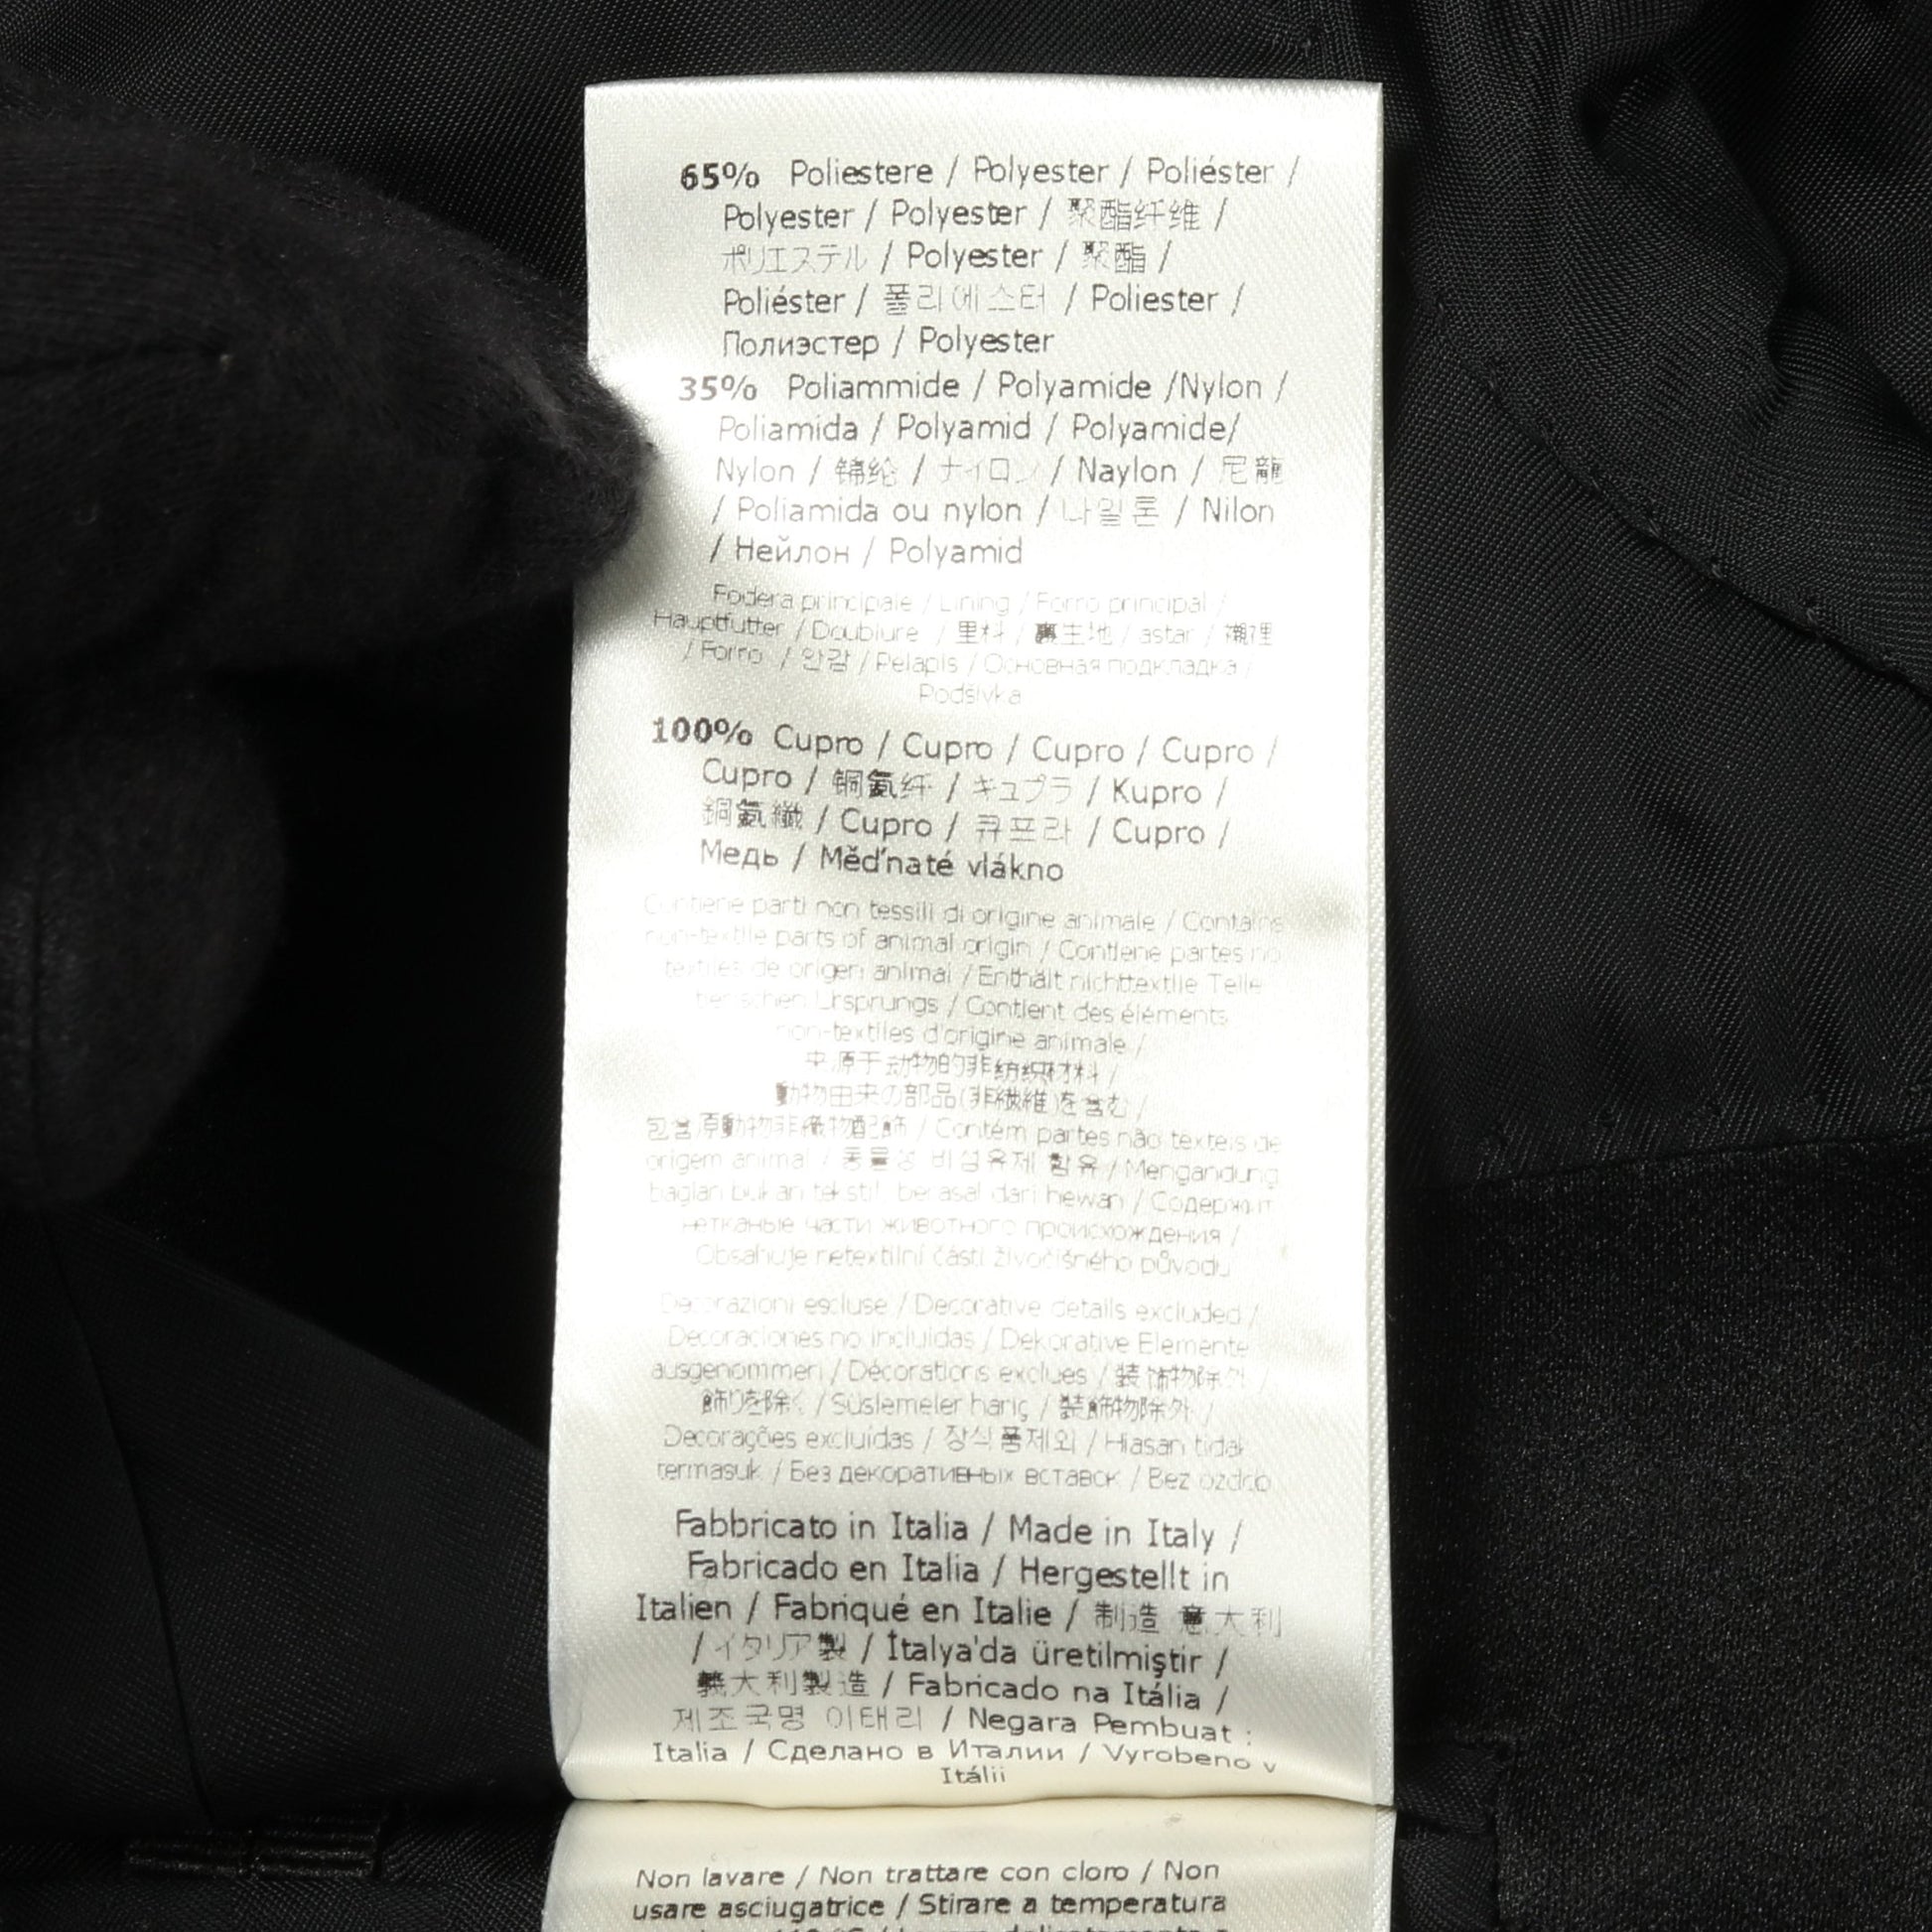 65% Poliestere / Polyester / Poliéster /
Polyester / Polyester / 聚酯纤维 /
ポリエステル / Polyester / 聚酯 /
Poliéster / 폴리에스터 / Poliester /
Полиэстер / Polyester
35% Poliammide / Polyamide /Nylon /
Poliamida / Polyamid / Polyamide/
Nylon / 锦纶 / ナイロン / Naylon / 尼龍
/ Poliamida ou nylon / 나일론 / Nilon
/ Нейлон / Polyamid
Fodera principale / Lining / Forro principal /
Hauptfutter / Doublure / 里料 / 裏生地 / astar / 襯裡
/ Forro / 안감 / Pelapis / Основная подкладка /
Podšívka
100% Cupro / Cupro / Cupro / Cupro /
Cupro / 铜氨纤 / キュプラ / Kupro /
銅氨纖 / Cupro / 큐프라 / Cupro /
Медь / Měďnaté vlákno
Contiene parti non tessili di origine animale / Contains
non-textile parts of animal origin / Contiene partes no
textiles de origen animal / Enthält nichttextile Teile
tierischen Ursprungs / Contient des éléments
non-textiles d'origine animale /
源于动物的非纺织材料 /
動物由来の部品(非繊維)を含む /
包含原動物非織物配飾 / Contém partes não têxteis de
origem animal / 동물성 비섬유제 함유 / Mengandung
bagian bukan tekstil, berasal dari hewan / Содержит
нетканые части животного происхождения /
Obsahuje netextilní části živočišného původu
Decorazioni escluse / Decorative details excluded /
Decoraciones no incluidas / Dekorative Elemente
ausgenommen / Décorations exclues / 装饰物除外 /
飾りを除く / Süslemeler hariç / 裝飾物除外 /
Decorações excluídas / 장식품제외 / Hiasan tidak
termasuk / Без декоративных вставок / Bez ozdob
Fabbricato in Italia / Made in Italy /
Fabricado en Italia / Hergestellt in
Italien / Fabriqué en Italie / 制造 意大利
/ イタリア製 / İtalya'da üretilmiştir /
義大利製造 / Fabricado na Itália /
제조국명 이태리 / Negara Pembuat :
Italia / Сделано в Италии / Vyrobeno v
Itálii
Non lavare / Non trattare con cloro / Non
usare asciugatrice / Stirare a temperatura